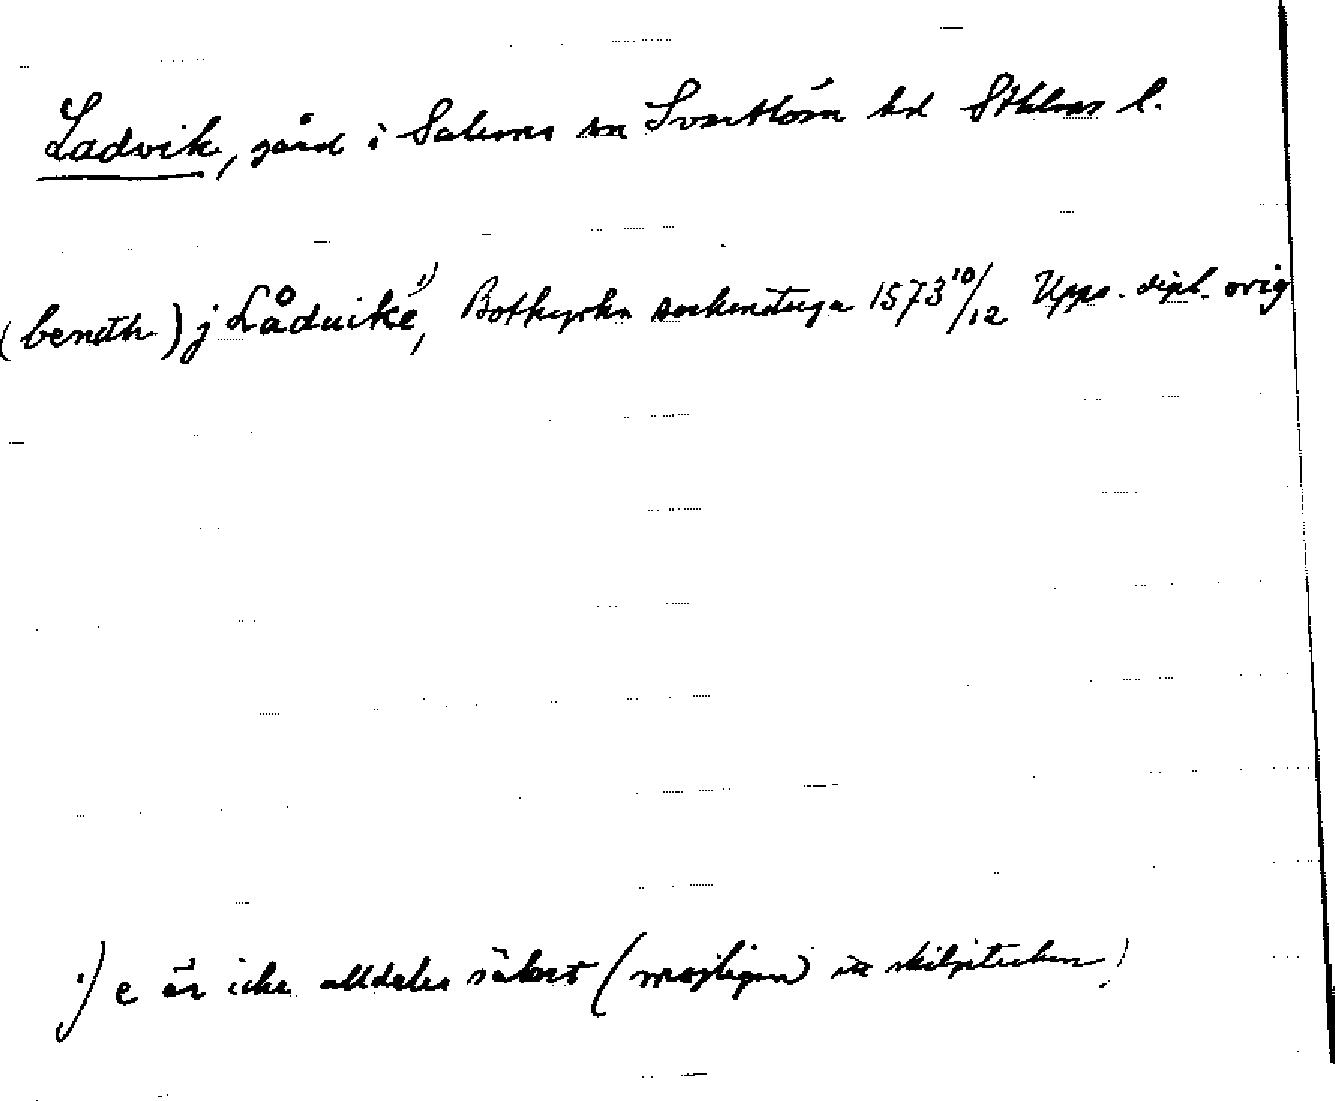 Ladvik, gård i Salems sn Svartlösa hd Sthlms l.
(bength) j Låduike 1), Botkyrka sockenstuga 1573 10/12 Upps. dipl. orig
1) e är icke alldeles säkert (möjligen skiljetecken)